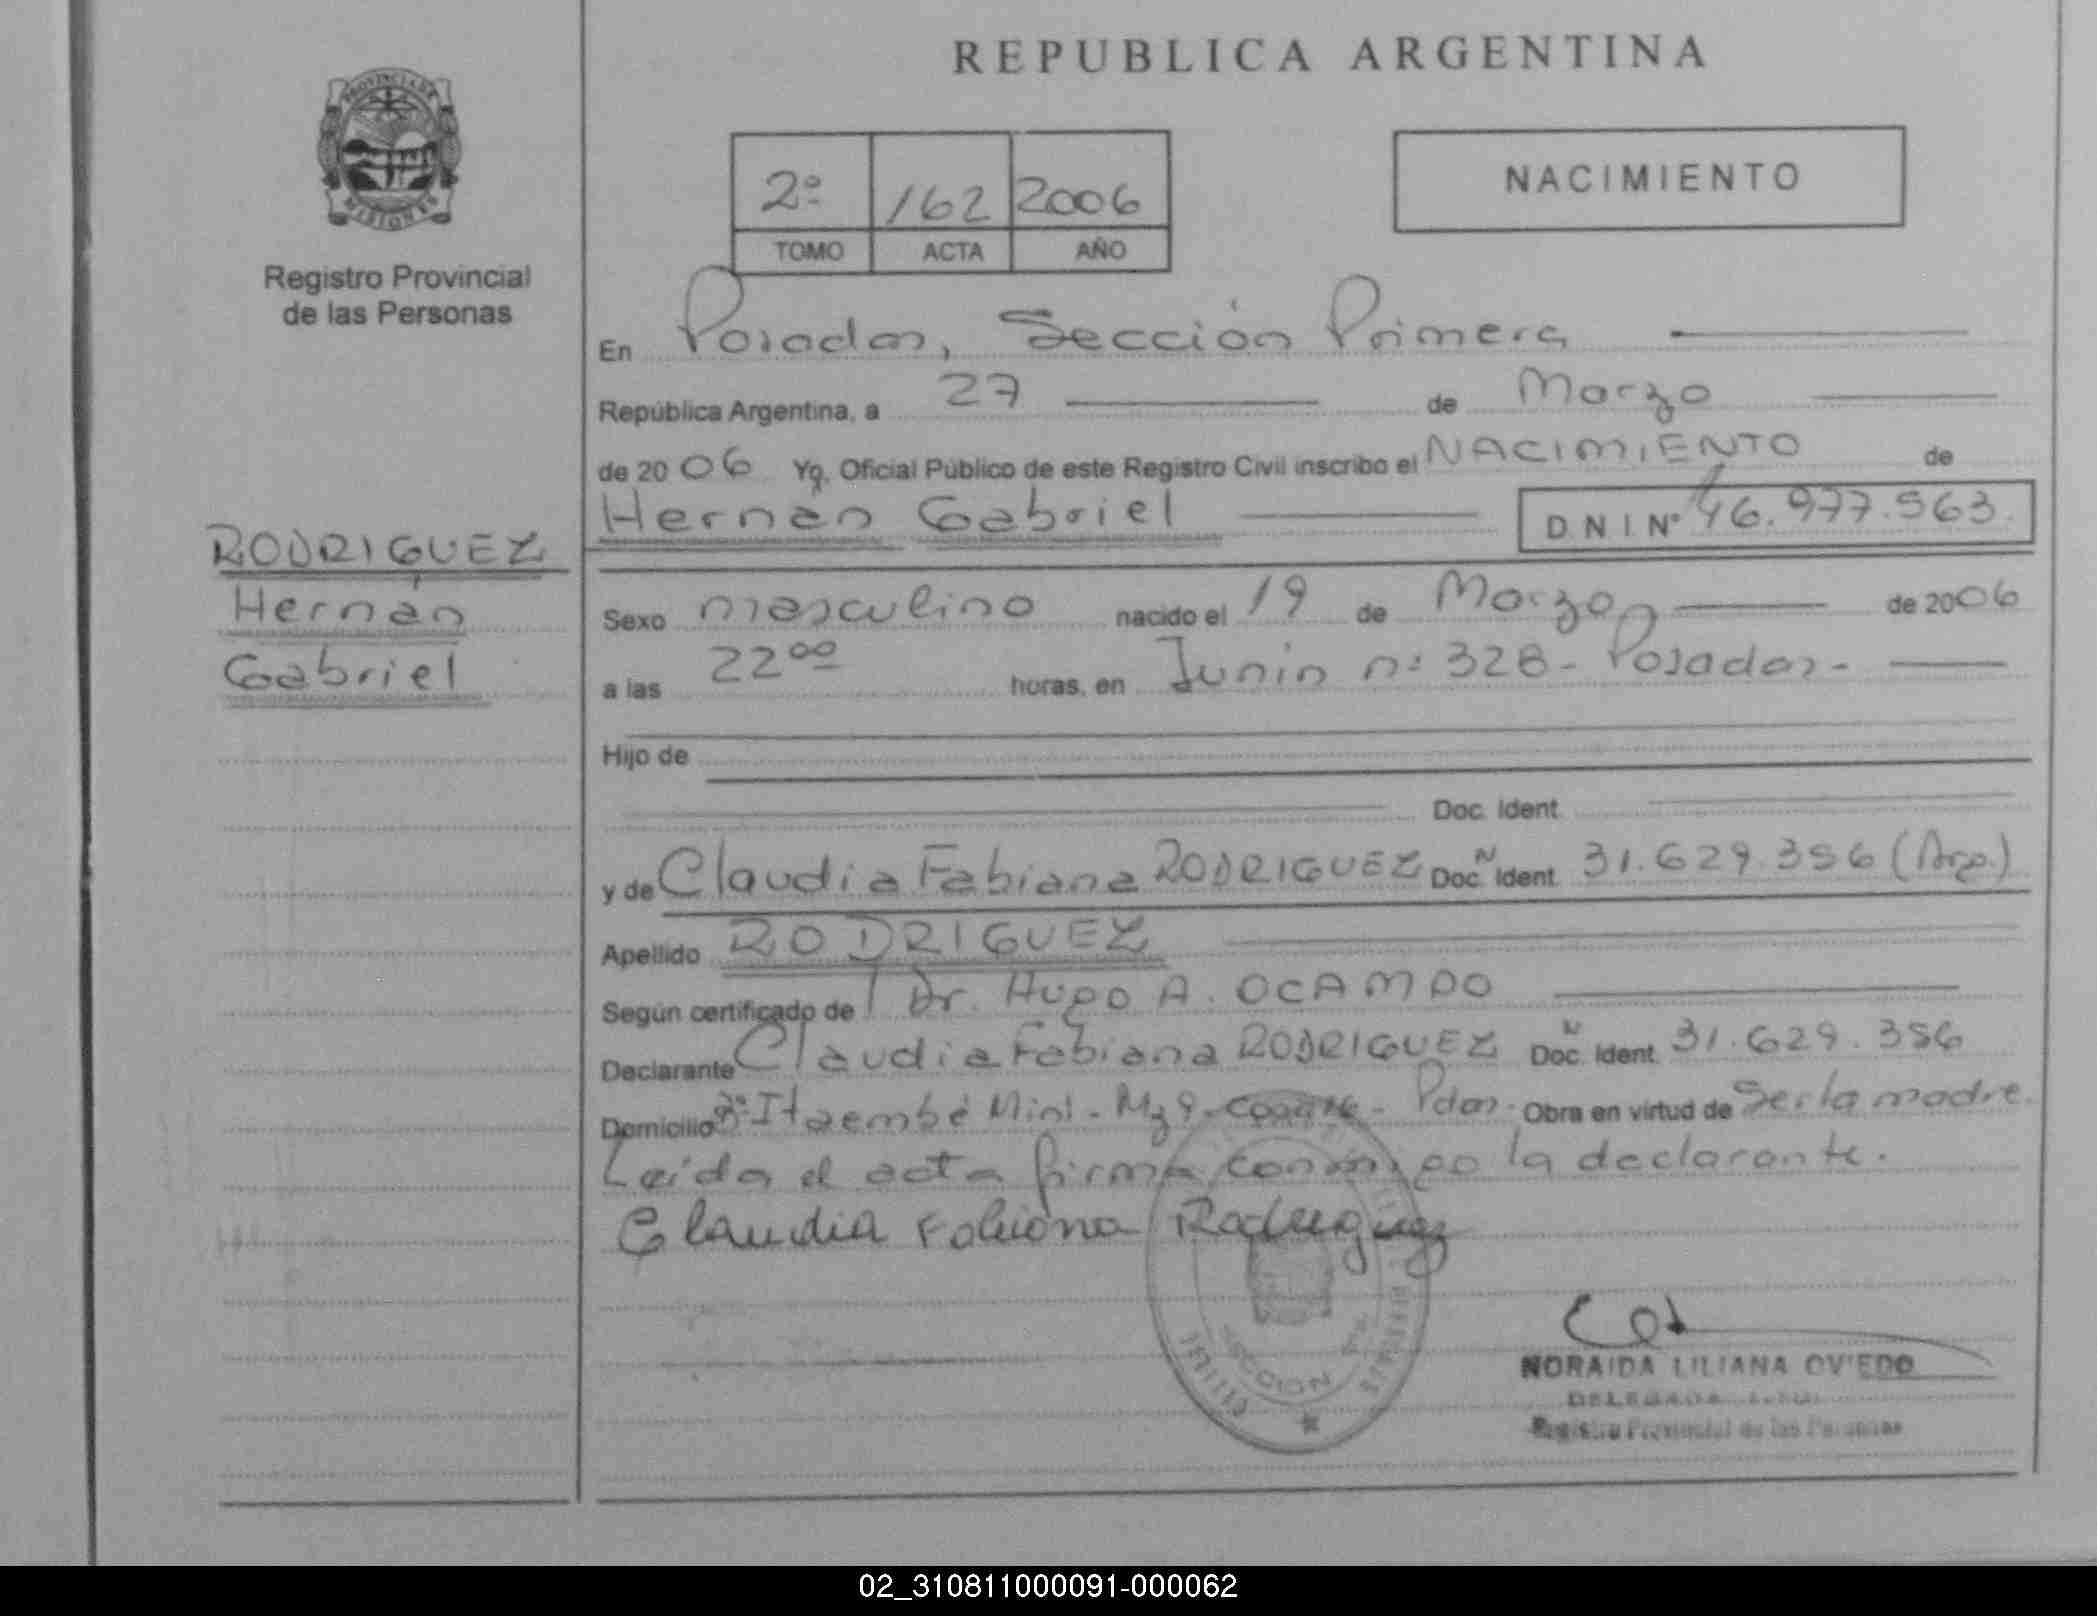 REPUBLICA ARGENTINA
PROVINCIA DE MISIONES
Registro Provincial
de las Personas
2º 162 2006
TOMO ACTA AÑO
NACIMIENTO
En Posadas, Sección Primera
República Argentina, a 27 de Marzo
de 2006 Yo, Oficial Público de este Registro Civil inscribo el NACIMIENTO de
Hernán Gabriel D N I Nº 46.977.563.
RODRIGUEZ
Hernán
Gabriel
Sexo masculino nacido el 19 de Marzo de 2006
a las 22ºº horas, en Junín nº 328 - Posadas -
Hijo de
Doc. Ident.
y de Claudia Fabiana RODRIGUEZ Doc. Ident. N 31.629.356 (Arg.)
Apellido RODRIGUEZ
Según certificado de Dr. Hugo A. OCAMPO
Declarante Claudia Fabiana RODRIGUEZ Doc. Ident. N 31.629.356
Domicilio Bº Itaembé Miní - Mz 9 - Pdas. Obra en virtud de Ser la madre.
Leída el acta firma conmigo la declarante.
Claudia Fabiana Rodriguez
SECCION
NORAIDA LILIANA OVIEDO
DELEGADA
Registro Provincial de las Personas
02_310811000091-000062